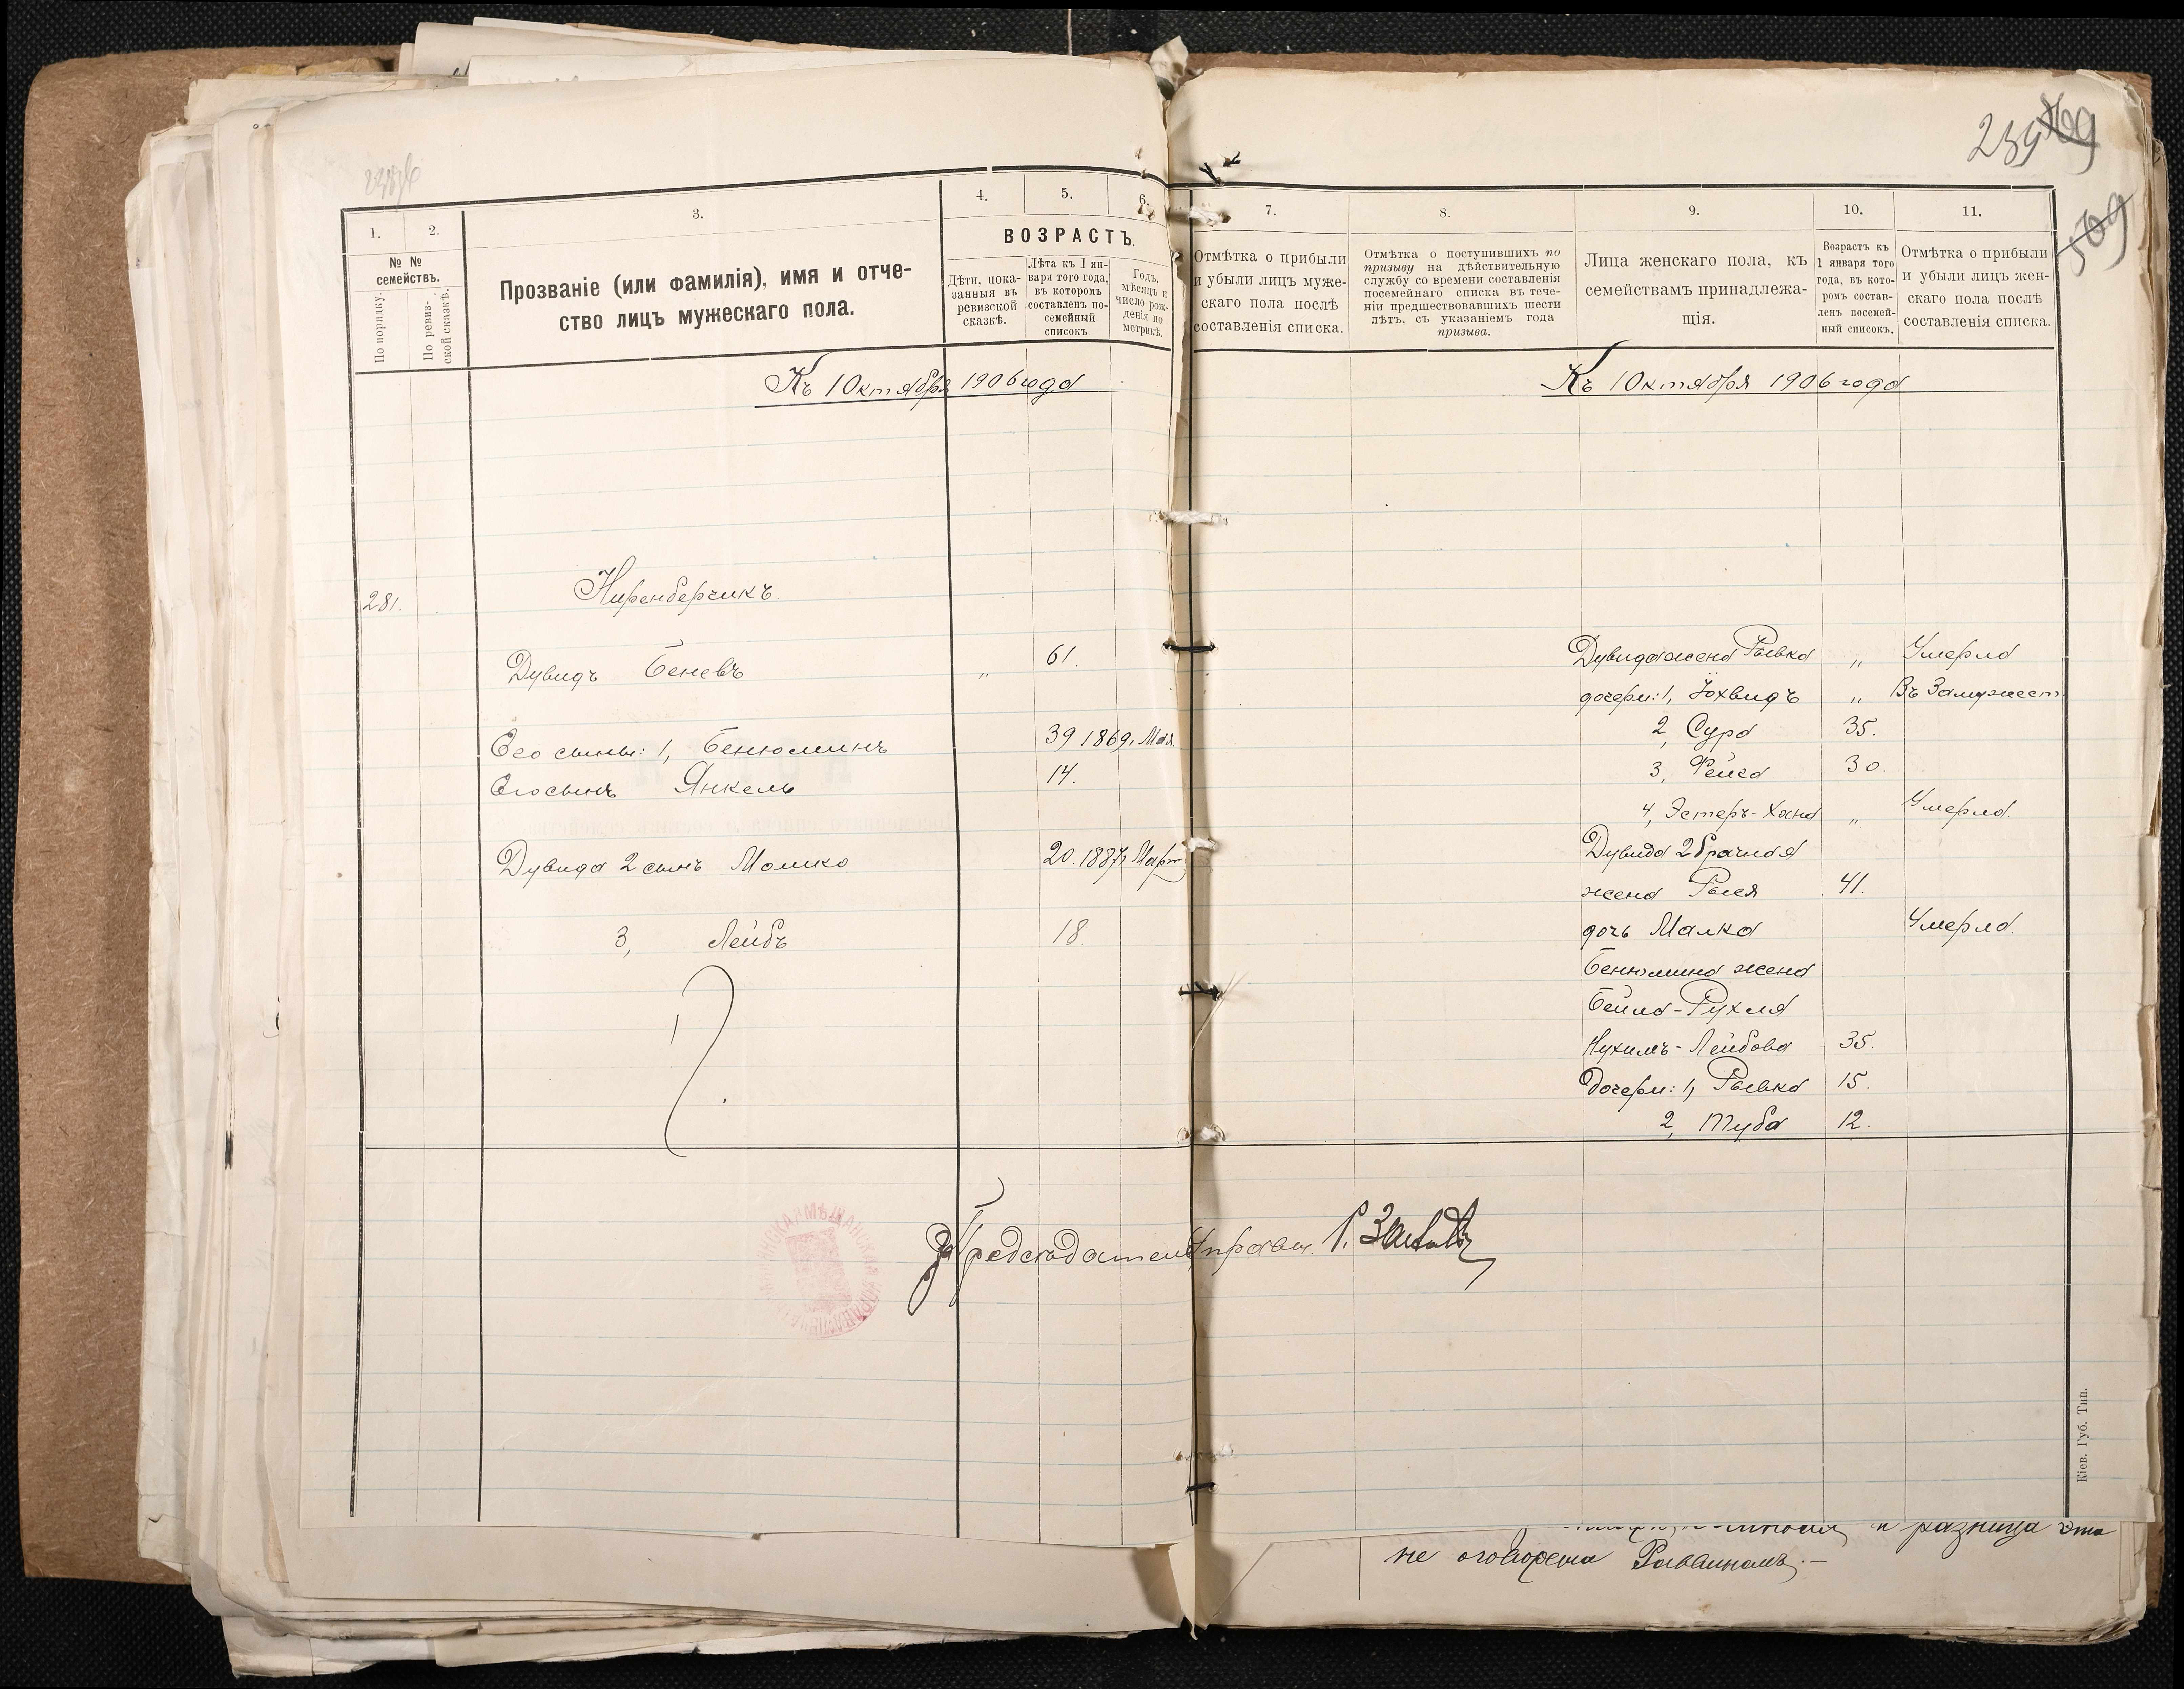 239
569
1.
2.
3.
4.
5.
6.
№ №
семействъ.
По порядку.
По ревиз-
ской сказкѣ.
Прозваніе (или фамилія), имя и отче-
ство лицъ мужескаго пола.
ВОЗРАСТЪ.
Дѣти, пока-
занныя въ
ревизской
сказкѣ.
Лѣта къ 1 ян-
варя того года,
въ которомъ
составленъ по-
семейный
списокъ
Годъ,
мѣсяцъ и
число рож-
денія по
метрикѣ.
Къ 1 Октября 1906 года
281.
Ниренберчикъ.
Дувидъ Беневъ „ 61.
Его сыны: 1, Бенюминъ 39 1869, Мая
Его сынъ Янкель 14.
Дувида 2 сынъ Мошко 20. 1887г Март
3, Лейбъ 18.
7.
8.
9.
10.
11.
Отмѣтка о прибыли
и убыли лицъ муже-
скаго пола послѣ
составленія списка.
Отмѣтка о поступившихъ по
призыву на дѣйствительную
службу со времени составленія
посемейнаго списка въ тече-
ніи предшествовавшихъ шести
лѣтъ, съ указаніемъ года
призыва.
Лица женскаго пола, къ
семействамъ принадлежа-
щія.
Возрастъ къ
1 января того
года, въ кото-
ромъ состав-
ленъ посемей-
ный списокъ.
Отмѣтка о прибыли
и убыли лицъ жен-
скаго пола послѣ
составленія списка.
Къ 1 Октября 1906 года
Дувида жена Рывка „ Умерла
дочери: 1, Іохвидъ „ Въ Замужест.
2, Сура 35.
3, Фейга 30.
4, Эстеръ-Хана „ Умерла.
Дувида 2 брачная
жена Рыся 41.
дочь Малка Умерла.
Бенюмина жена
Бейла-Рухля
Нухимъ-Лейбова 35.
Дочери: 1, Рывка 15.
2, Туба 12.
За Предсѣдателя Управы
Кіев. Губ. Тип.
и разница эта
не оговорена Раввиномъ.—